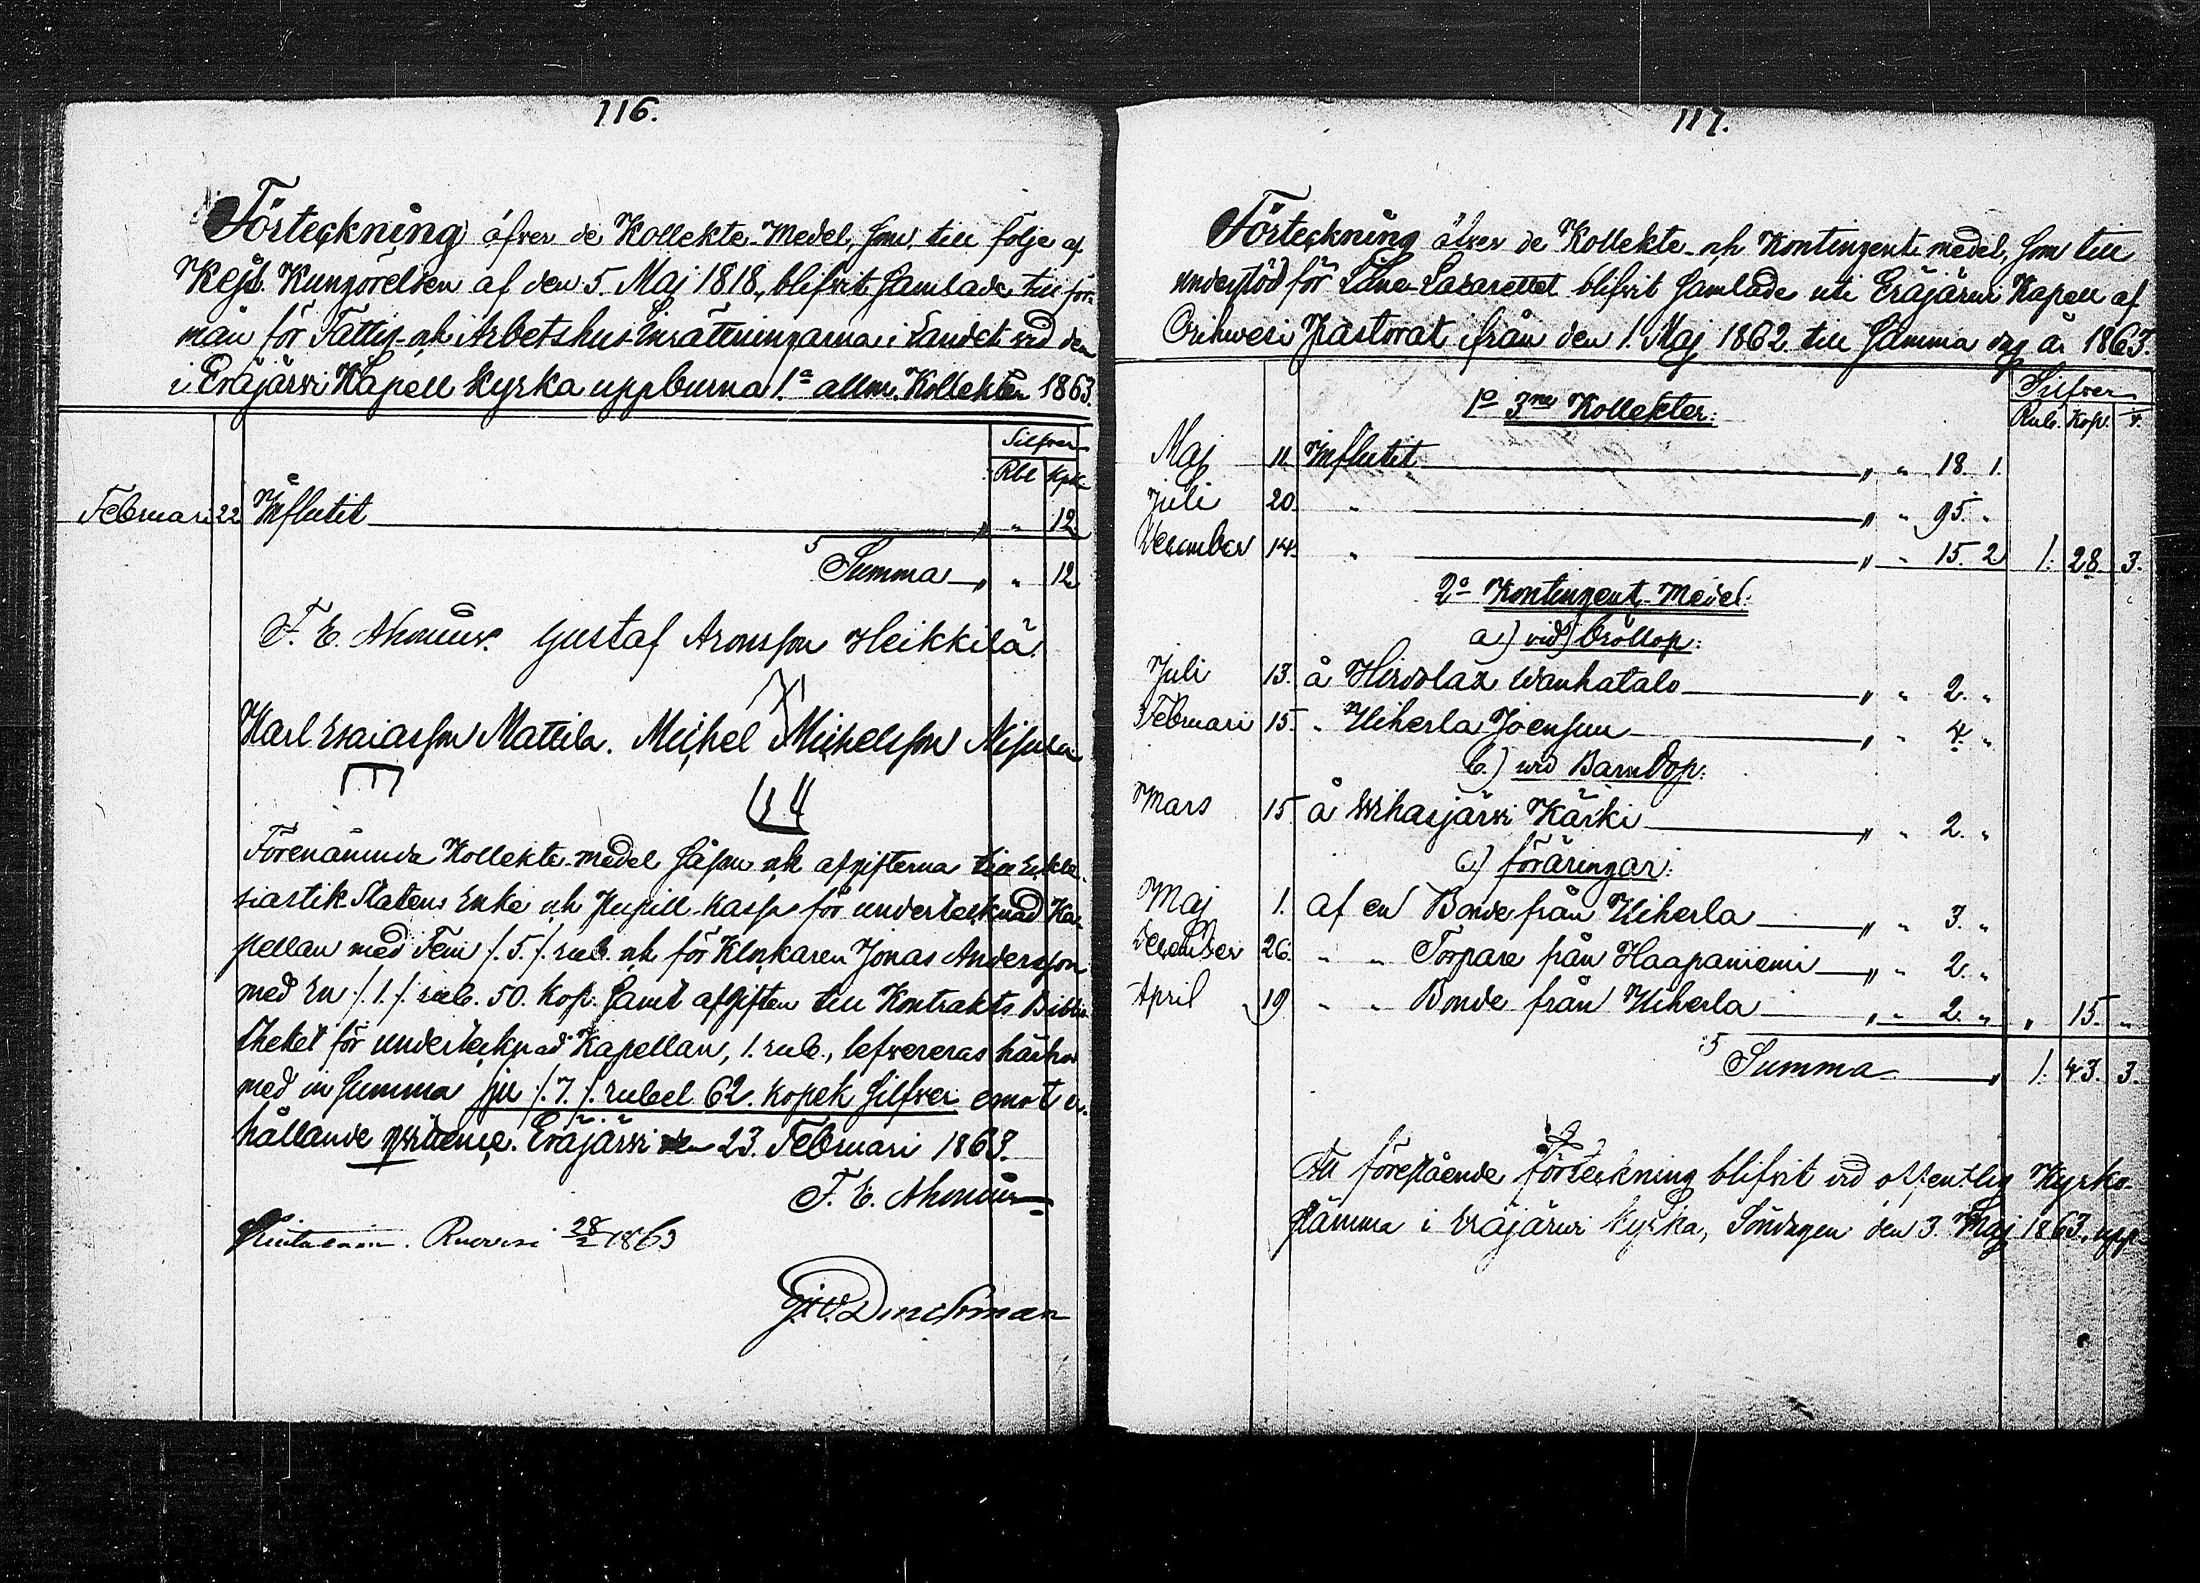 116.
Förteckning öfver de Kollekte-Medel, som till följe af
Kejs. Kungörelsen af den 5. Maj 1818, blifvit samlade till för-
mån för Fattig- och Arbetshus Inrättningarna i Landet vid den
i Eräjärvi Kapell kyrka uppburna 1.a allm. Kollekten 1863.
Silfver
Rbl Kpk
Februari 22 Influtit „ „ 12
Summa „ „ 12
F. E. Ahonius. Gustaf Aronsson Heikkilä.
Karl Esaiasson Mattila. Michel Michelsson Nisula
Förenämnda Kollekte-medel såsom och afgifterna till Eckle-
siastik Statens Enke och Pupill-kassa för undertecknad Ka-
pellan med Fem /. 5. /. rub. och för Klockaren Jonas Andersson
med En /. 1. /. rub. 50. kop. samt afgiften till Kontrakts Biblio-
theket för undertecknad Kapellan, 1. rub., lefvereras härho
med in summa sju /. 7. /. rubel 62. kopek silfver emot er-
hållande qvittence. Eräjärvi den 23. Februari 1863.
F. E. Ahonius
Ruovesi 28/2 1863
117.
Förteckning öfver de Kollekte- och Kontingents medel, som till
understöd för Läns-Lasarettet blifvit samlade uti Eräjärvi Kapell af
Orihwesi Pastorat ifrån den 1. Maj 1862. till samma dag år 1863.
Silfver
Rub. Kop. ¼.
1o 3ne Kollekter:
Maj 11. Influtit „ „ 18. 1.
Juli 20. „ „ „ 95. „
December 14. „ „ „ 15. 2 1. 28. 3.
2o Kontingent-Medel:
a.) vid Bröllop:
Juli 13. å Hirvolax Wanhatalo „ „ 2. „
Februari 15. „ Uiherla Joensuu „ „ 4. „
b.) vid Barndop:
Mars 15. å Wihasjärvi Kärki „ „ 2. „
c.) föräringar:
Maj 1. af en Bonde från Uiherla „ „ 3. „
December 26. „ „ Torpare från Haapaniemi „ „ 2. „
April 19 „ „ Bonde från Uiherla „ „ 2. „ „ 15. „
Summa „ 1. 43. 3.
Att förestående förteckning blifvit vid offentlig Kyrko-
stämma i Eräjärvi kyrka, Söndagen den 3. Maj 1863. upp-